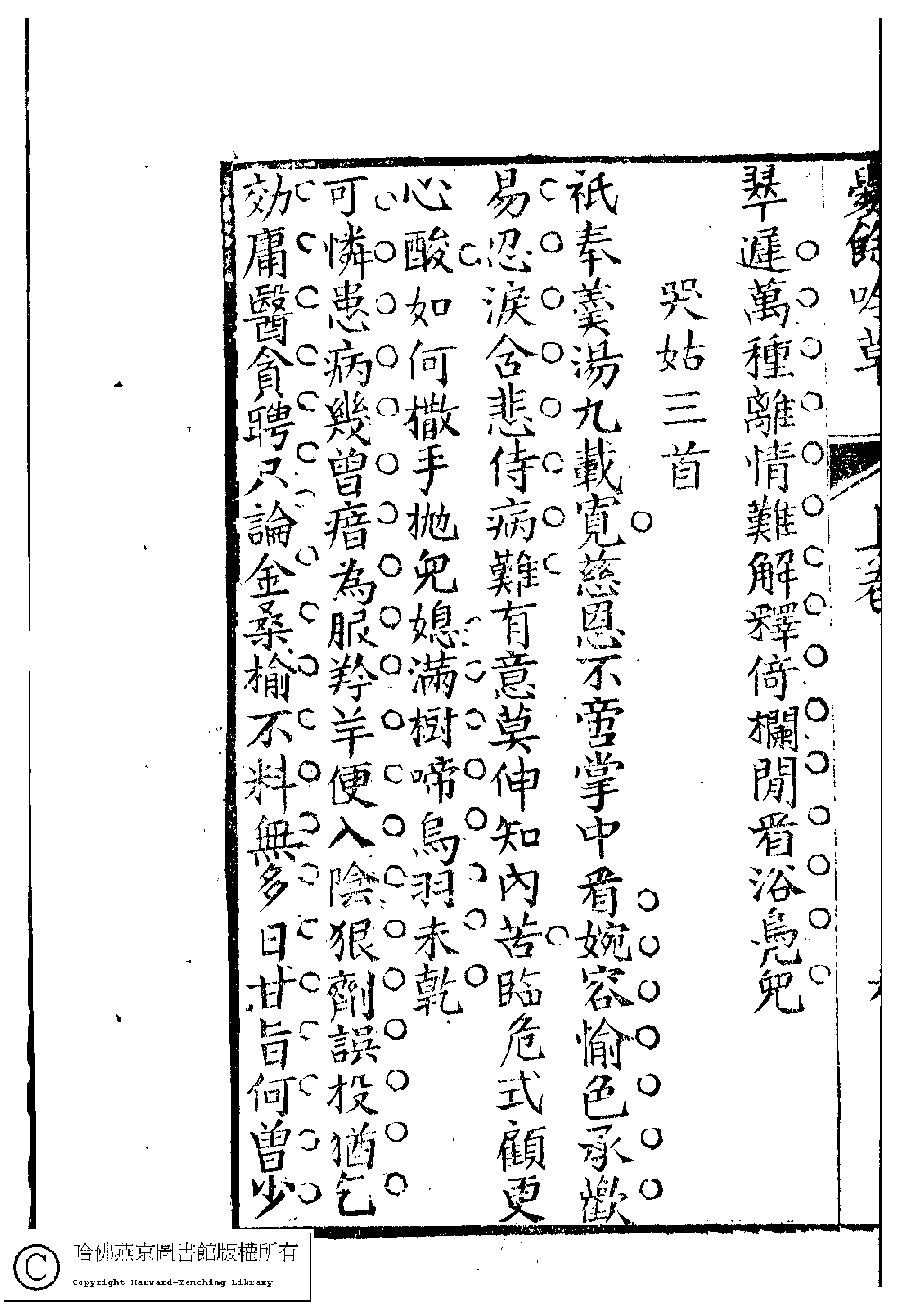 吟草
上卷
翠遲萬種離情難解釋倚欄閒看浴鳧兒
哭姑三首
祇奉羹湯九載寬慈恩不啻掌中看婉容愉色承歡
易忍淚含悲侍病難有意莫伸知內苦臨危式顧更
心酸如何撒手拋兒媳滿樹啼烏羽未乾
可憐患病幾曾瘖為服羚羊便入陰狠劑誤投猶乞
効庸醫貪聘只論金桑榆不料無多日甘旨何曾少
哈佛燕京圖書館版權所有
Copyright Harvard-Yenching Library